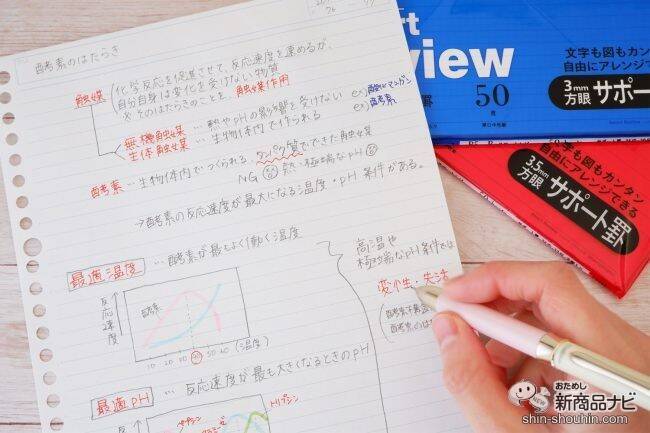 酵素のはたらき
触媒
化学反応を促進させて、反応速度を速めるが、
自分自身は変化を受けない物質
※そのはたらきのことを、触媒作用
無機触媒…熱やpHの影響を受けない ex)酸化マンガン
生体触媒…生物体内で作られる ex)酵素
酵素…生物体内でつくられる、タンパク質でできた触媒
NG 熱・極端なpH
→酵素の反応速度が最大になる温度・pH条件がある。
最適温度 …酵素が最もよく働く温度
反応速度
酵素
10 20 30 40 50 60 (温度)
高温や
極端なpH条件では
変性・失活
酵素の
最適pH …反応速度が最も大きくなるときのpH
ペプシン
トリプシン
rt
view
文字も図もカンタン
自由にアレンジで
3mm
方眼
サポー
50
枚
文字も図もカンタン
自由にアレンジできる
3.5mm
方眼
サポート罫
おためし
新商品ナビ
NEW
shin-shouhin.com